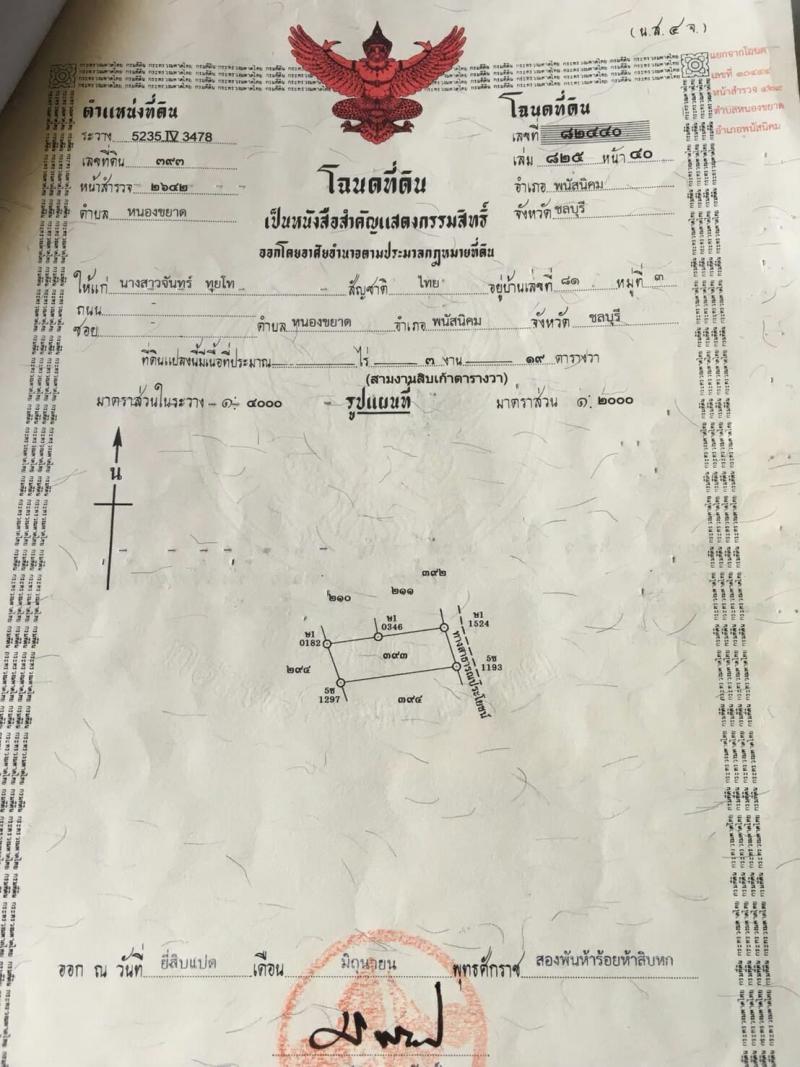 (น.ส.๔ จ.)
แยกจากโฉนด
เลขที่ ๑๐๔๔๔
หน้าสำรวจ
ตำบลหนองขยาด
อำเภอพนัสนิคม
ตำแหน่งที่ดิน
ระวาง 5235 IV 3478
เลขที่ดิน ๓๙๓
หน้าสำรวจ ๒๖๔๒
ตำบล หนองขยาด
โฉนดที่ดิน
เลขที่ ๘๒๔๔๐
เล่ม ๘๒๕ หน้า ๔๐
อำเภอ พนัสนิคม
จังหวัด ชลบุรี
โฉนดที่ดิน
เป็นหนังสือสำคัญแสดงกรรมสิทธิ์
ออกโดยอาศัยอำนาจตามประมวลกฎหมายที่ดิน
ให้แก่ นางสาวจันทร์ ทุยโท - สัญชาติ ไทย อยู่บ้านเลขที่ ๘๑ หมู่ที่ ๓
ถนน -
ซอย - ตำบล หนองขยาด อำเภอ พนัสนิคม จังหวัด ชลบุรี
ที่ดินแปลงนี้มีเนื้อที่ประมาณ - ไร่ ๓ งาน ๑๙ ตารางวา
(สามงานสิบเก้าตารางวา)
มาตราส่วนในระวาง ๑: ๔๐๐๐ รูปแผนที่ มาตราส่วน ๑: ๒๐๐๐
น
๓๙๒
๒๑๐ ๒๑๑
ษ1 0182
ษ1 0346
ษ1 1524
๓๙๓
๒๙๔
ทางสาธารณประโยชน์
5ช 1193
5ช 1297
๓๙๔
ออก ณ วันที่ ยี่สิบแปด เดือน มิถุนายน พุทธศักราช สองพันห้าร้อยห้าสิบหก